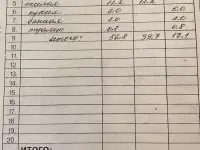 5
6 кухня 6.0 6.0
7 ванная 1.0 1.0
8 туалет 0.8 0.8
9 итого: 56.8 39.7 17.1
10
11
12
13
14
15
16
17
18
19
20
ИТОГО: